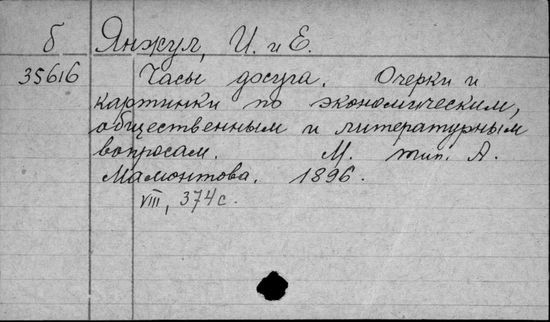 б Янжул, И. и Е.
35616 Часы досуга. Очерки и
картинки по экономическим,
общественным и литературным
вопросам. М. тип. А.
Мамонтова. 1896.
VIII, 374 с.